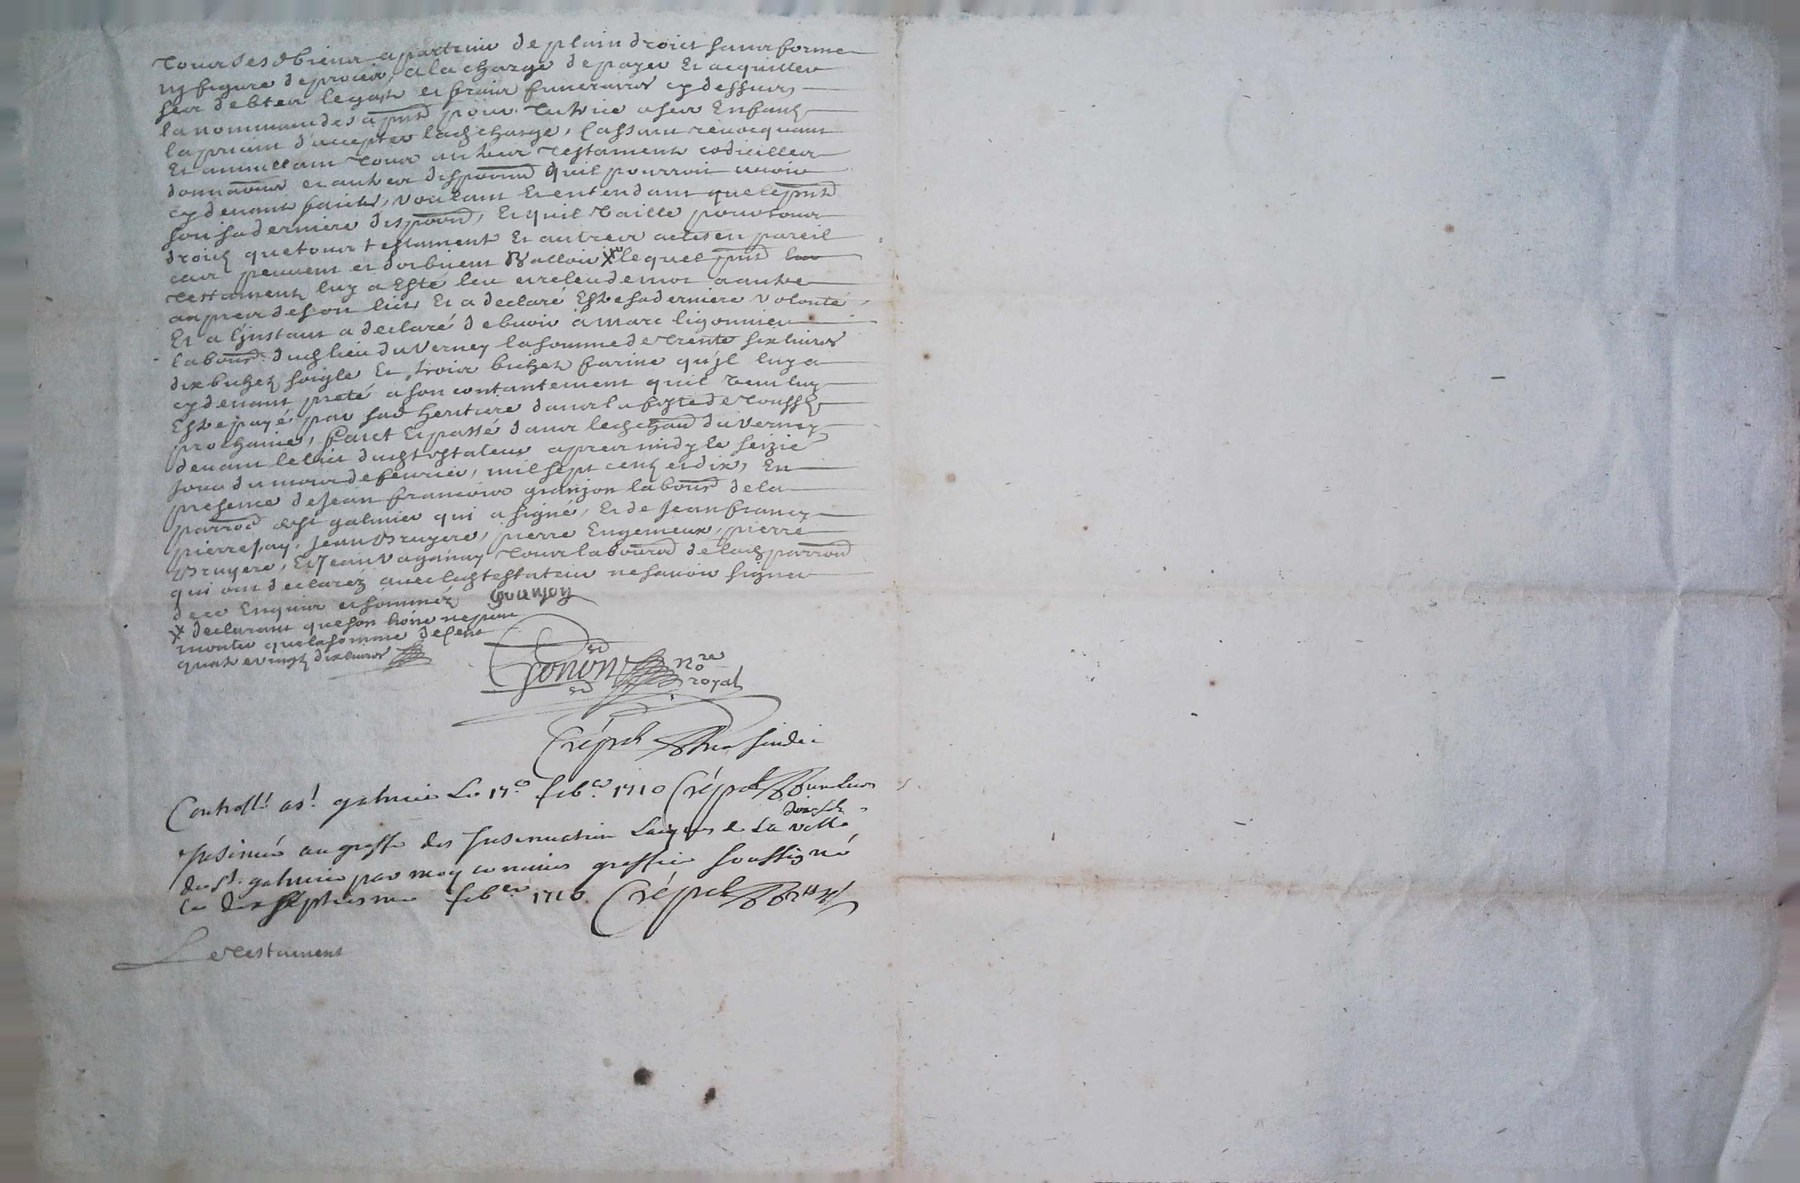 Tous ses dbiens apartenir de plain droict sans forme
ny figure de procès, a la charge de payer et acquitter
ses debtes legats et fraix funeraires cy dessus
la nommandes a pnt pour Tutrice a ses Enfants
la priant d'accepter lad charge, Cassant revocquant
Et annullant tous autres Testaments codicilles
donnaons et autres dispoons quil pourroit avoir
cy devant faicts, voulant Et entendant que le pnt
soit sa derniere dispoon, Et quil Vaille pour tous
droits que tous testaments Et autres actes en pareil
cas peuvent et doibvent Valloir X lequel pnt
Testament luy a Esté leu et releu de mot a autre
au pres de son lict Et a declaré Estre sa derniere volonté
Et a l'instant a declaré debvoir a Marc ligonnier
labour dud lieu du Verney la somme de trente six livres
dix bichets soigle Et trois bichets farine qu'il luy a
cy devant preté a son contantement quil veut luy
Estre payé par sad heritiere dans la feste de Toussts
prochaine, Faict Et passé dans led chau du Verney
devant le lict dud testateur apres midy le seizie
jour du mois de febvrier, mil sept cents et dix, En
presence de Jean francois granjon labour de la
parroe de st galmier qui a signé, Et de Jean francs
pierre Jay, Jean Bruyere, pierre Engemeux, pierre
Bruyere, Et Jean Vaganay tous labours de lad parroe
qui ont declarez avec led testateur ne savoir signer
de ce Enquis et sommez Granjon
X declarant que son hoirie ne peut
monter que la somme de cent
quatre vingts dix livres
Gonon nore royal
Crépet
Controllé a st galmier Le 17e feber 1710 Crépet
Insinué au greffe des Insinuations Laiques de La ville
de st galmier par moy commis greffier soussigné
ce dix septiesme feber 1710 Crépet
Le testament